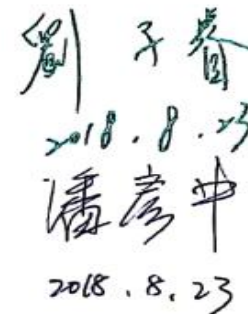 劉子睿
2018.8.23
潘彥中
2018.8.23